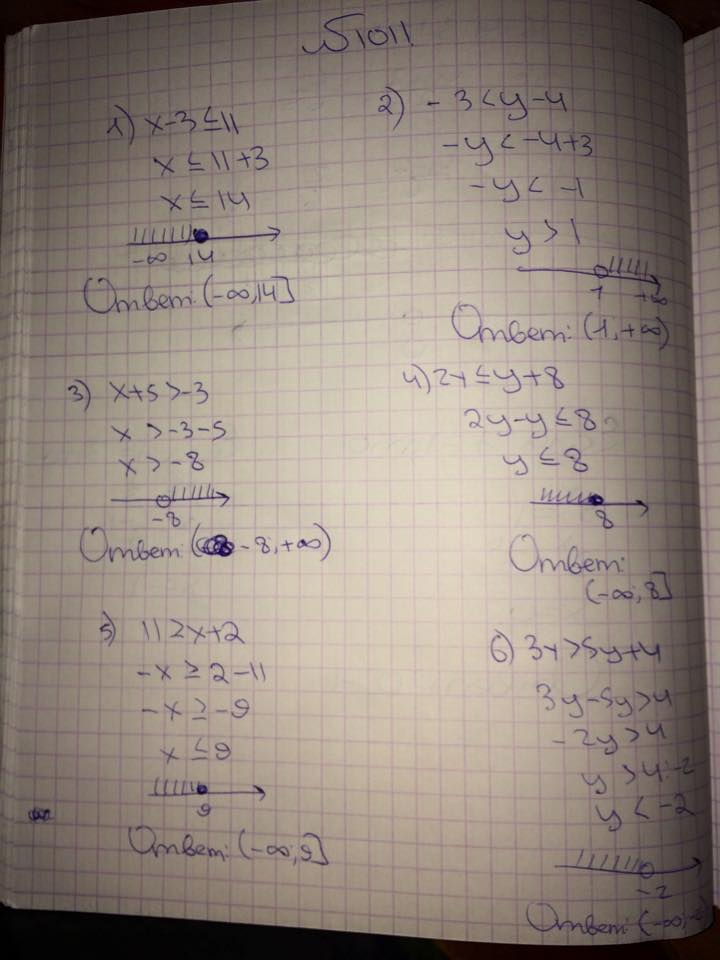 №1011
1) x-3≤11
x≤11+3
x≤14
-∞ 14
Ответ: (-∞,14]
2) -3<y-4
-y<-4+3
-y<-1
y>1
1 +∞
Ответ: (1,+∞)
3) x+5>-3
x>-3-5
x>-8
-8
Ответ: (-8,+∞)
4) 2y≤y+8
2y-y≤8
y≤8
8
Ответ:
(-∞,8]
5) 11≥x+2
-x≥2-11
-x≥-9
x≤9
9
Ответ: (-∞,9]
6) 3y>5y+4
3y-5y>4
-2y>4
y>4:-2
y<-2
-2
Ответ: (-∞;-2)